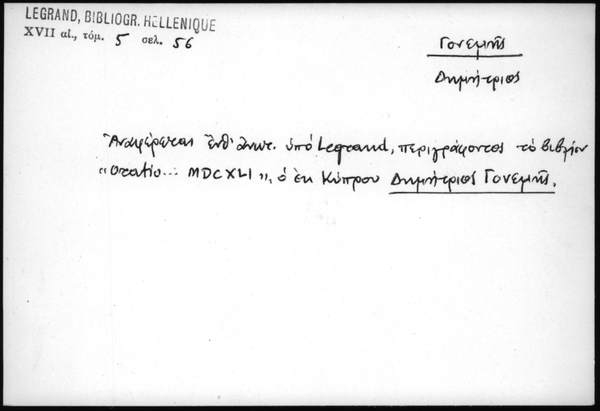 LEGRAND, BIBLIOGR. HELLENIQUE
XVII αἰ., τόμ. 5 σελ. 56
Γονεμῆς
Δημήτριος
Ἀναφέρεται ἔνθ' ἀνωτ. ὑπό Legrand, περιγράφοντος τὸ βιβλίον
“Oratio... MDCXLI”, ὁ ἐκ Κύπρου Δημήτριος Γονεμῆς.